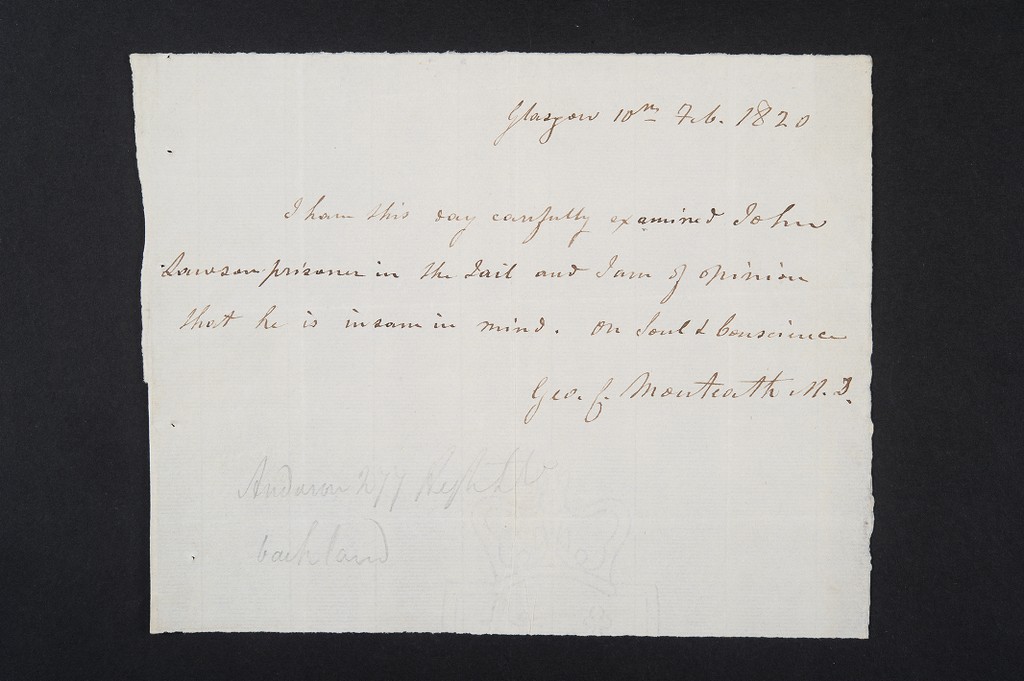 Glasgow 10th Feb. 1820
I have this day carefully examined John
Lawson prisoner in the Jail and I am of opinion
that he is insane in mind. On Soul & Conscience
Geo. C. Monteath M.D.
Anderson 277
backland